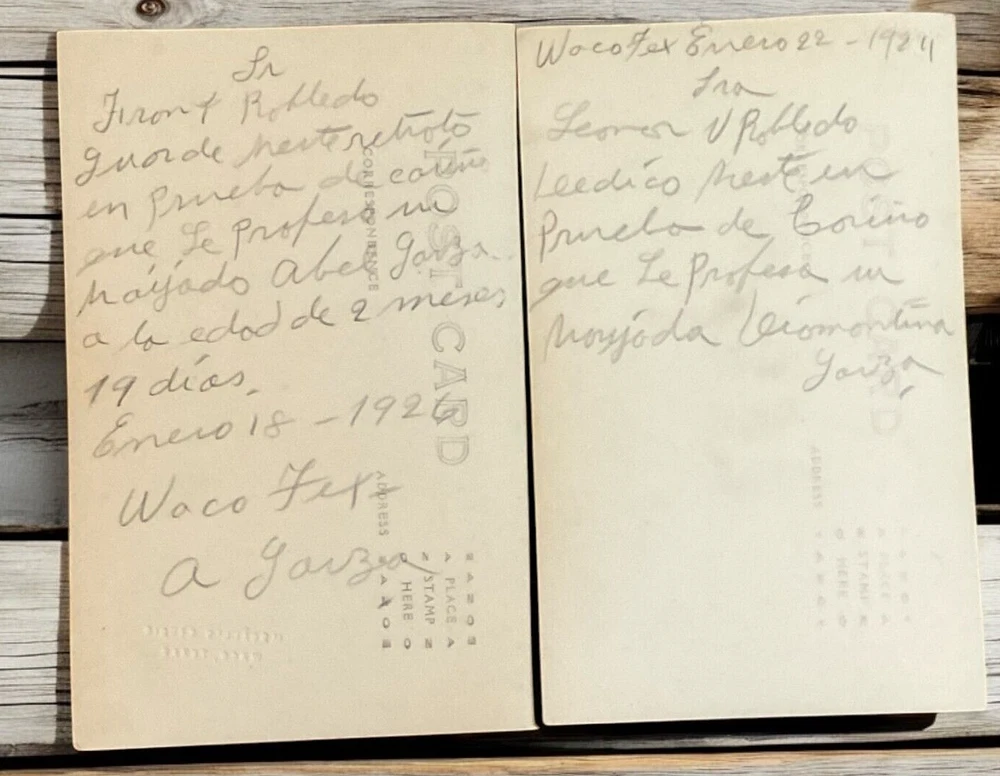 Sr
Robledo
guarde este retrato
en prueba de cariño
que Le Profesa un
Abel Garza
a la edad de 2 meses
19 días.
Enero 18 - 1926
Waco Tex
A Garza
POST CARD
CORRESPONDENCE
ADDRESS
AZO
PLACE
STAMP
HERE
Waco Tex Enero 22 - 1924
Sra
Leonor V Robledo
Leedico este en
Prueba de Coriño
que Le Profesa un
Garza
POST CARD
ADDRESS
PLACE
STAMP
HERE